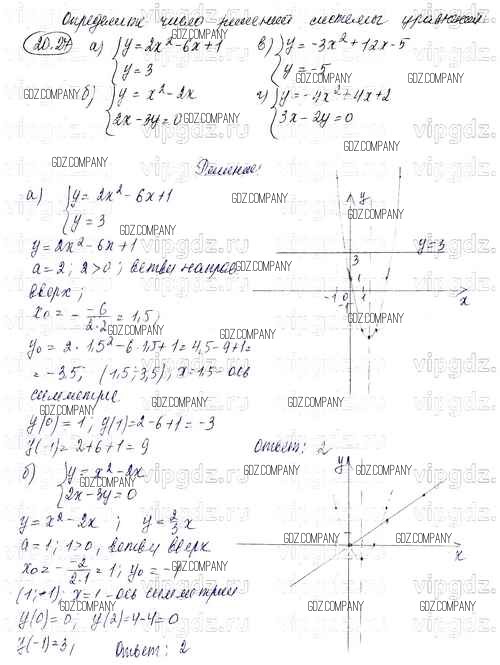 Определить число решений системы уравнений
20.27 а) { y = 2x² - 6x + 1
y = 3
в) { y = -3x² + 12x - 5
y = -5
б) { y = x² - 2x
2x - 3y = 0
г) { y = -4x² + 4x + 2
3x - 2y = 0
Решение:
а) { y = 2x² - 6x + 1
y = 3
y = 2x² - 6x + 1
a = 2; 2 > 0; ветви направ
вверх;
x₀ = - -6/2·2 = 1,5;
y₀ = 2 · 1,5² - 6·1,5 + 1 = 4,5 - 9 + 1 =
= -3,5; (1,5; -3,5); x = 1,5 - ось
симметрии
y(0) = 1; y(1) = 2 - 6 + 1 = -3
y(-1) = 2 + 6 + 1 = 9
y
y = 3
3
1
-1 0 1
-1
x
Ответ: 2
б) { y = x² - 2x
2x - 3y = 0
y = x² - 2x ; y = 2/3 x
a = 1; 1 > 0, ветви вверх
x₀ = - -2/2·1 = 1; y₀ = -1
(1; -1) x = 1 - ось симметрии
y(0) = 0; y(2) = 4 - 4 = 0
y(-1) = 3; Ответ: 2
y
x
GDZ.COMPANY
vipgdz.ru